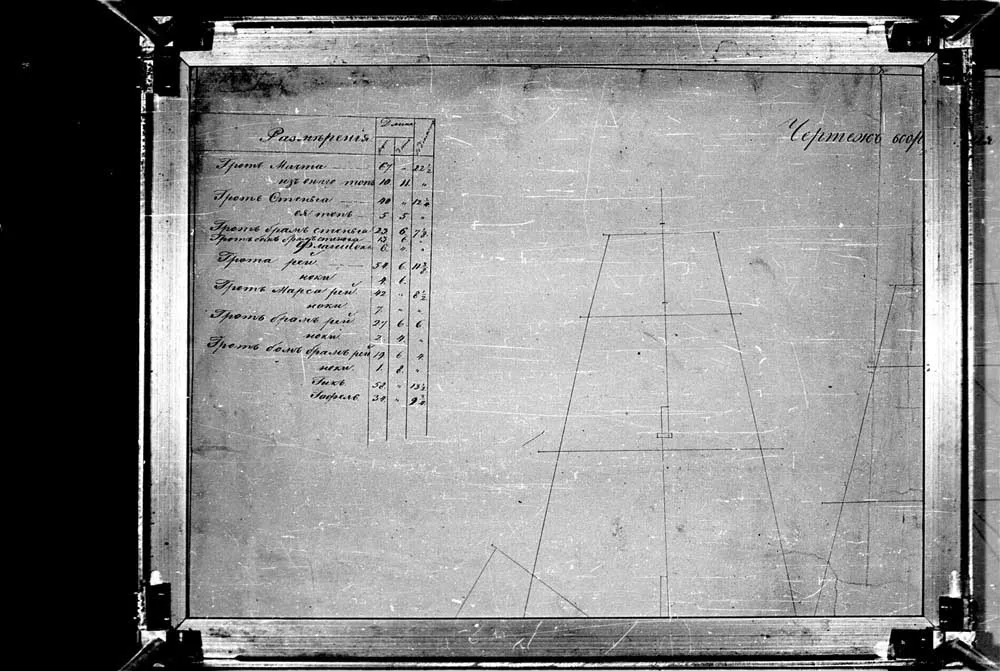 Размѣренія Длина
Гротъ Мачта 67 „ 22½
изъ оного топъ 10 11 „
Гротъ Стеньга 40 „ 12¼
ея топъ 5 5 „
Гротъ брамъ стеньга 23 6
Гротъ бомъ брамъ стеньга 13 6
Флагштокъ 6 „ „
Грота рей 54 6
ноки 4 6
Гротъ Марса рей 42 „ 8½
ноки 7 „ „
Гротъ брамъ рей 27 6 6
ноки 2 4 „
Гротъ бомъ брамъ рей 19 6 4
ноки 1 8 „
Гикъ 52 „
Гафель 34 „
Чертежъ воор